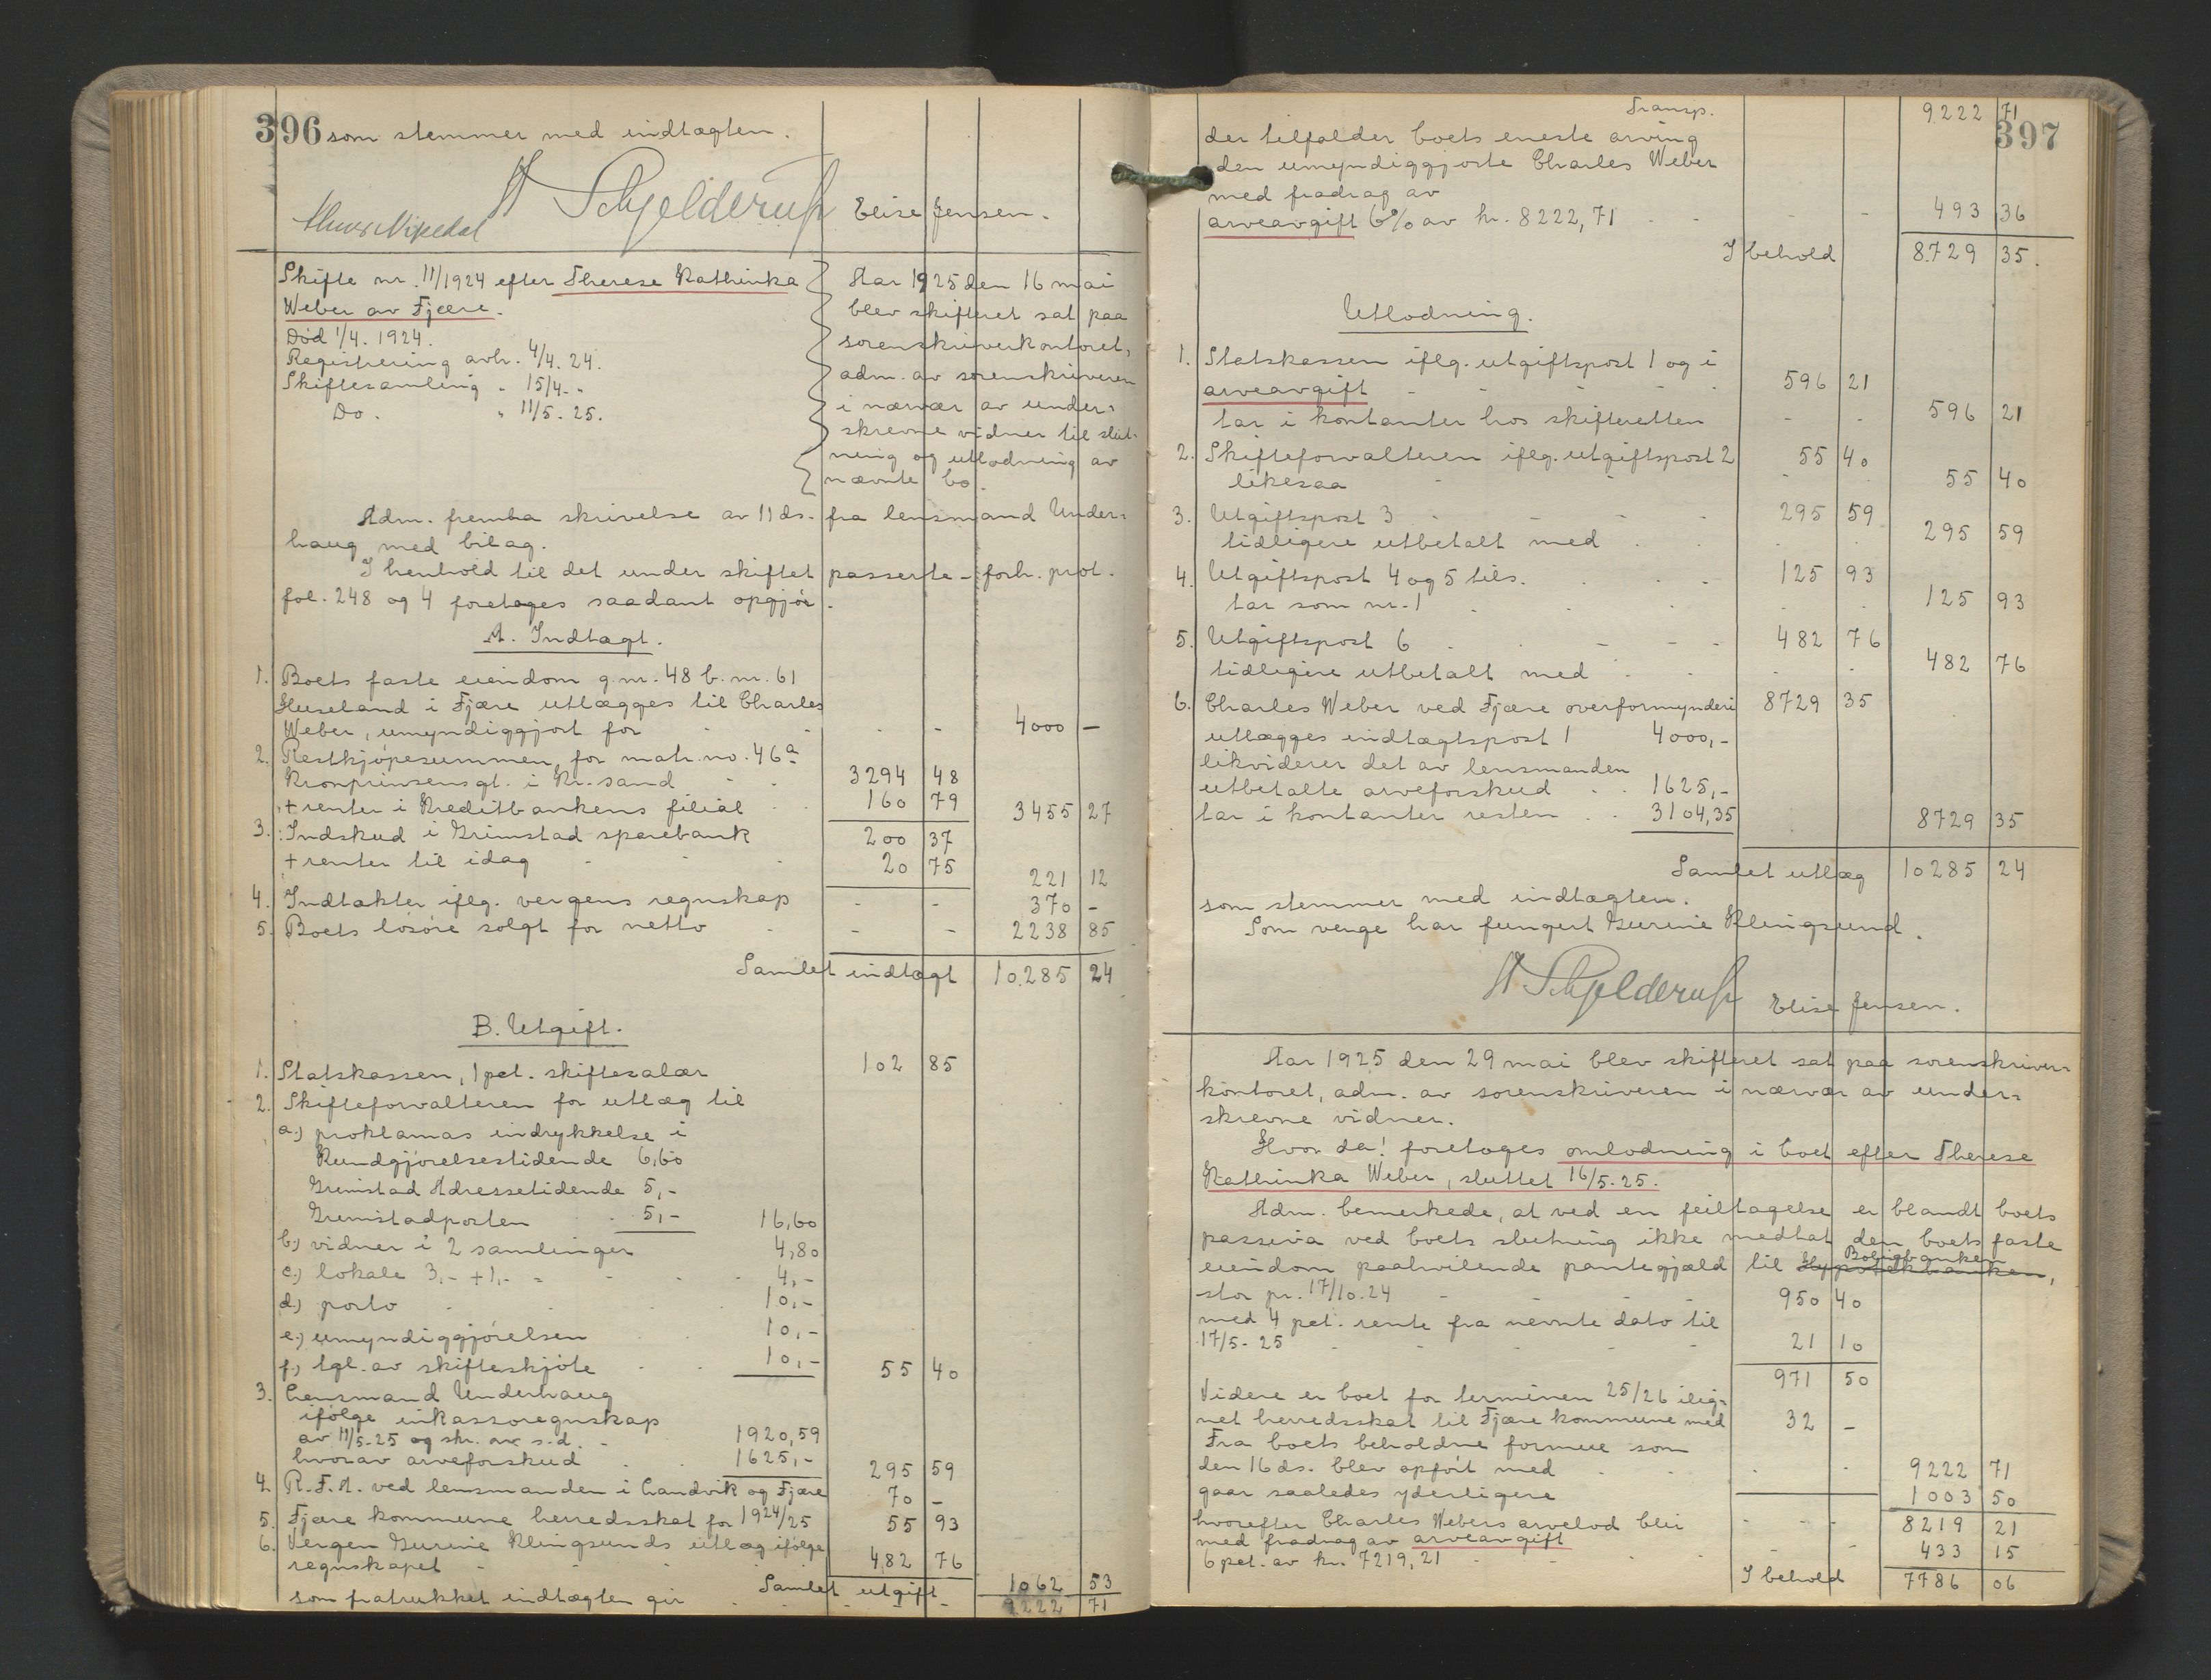 396 som stemmer med indtægten.
A Schjelderup Elise Jensen.
Skifte nr. 11/1924 efter Therese Kathinka
Weber av Fjære.
Död 1/4. 1924.
Registrering avh. 4/4. 24.
Skiftesamling „ 15/4. „
Do. „ 11/5. 25.
Aar 1925 den 16 mai
blev skifteret sat paa
sorenskriverkontoret,
adm. av sorenskriveren
i nærvær av under-
skrevne vidner til slut-
ning og utlodning av
nævnte bo.
Adm. fremla skrivelse av 11 ds. fra lensmand Under-
haug med bilag.
I henhold til det under skiftet passerte - forh. prot.
fol. 248 og 4 foretages saadant opgjör.
A. Indtægt.
1. Boets faste eiendom g.nr. 48 b.nr. 61
Huseland i Fjære utlægges til Charles
Weber, umyndiggjort for - - 4000 -
2. Restkjöpesummen for matr. no. 46a
Kronprinsensgt. i Kr.sand 3294 48
+ renter i Kreditbankens filial 160 79 3455 27
3. Indskud i Grimstad sparebank 200 37
+ renter til idag 20 75 221 12
4. Indtækter iflg. vergens regnskap - - 370 -
5. Boets lösöre solgt for netto - - 2238 85
Samlet indtægt 10.285 24
B. Utgift.
1. Statskassen, 1 pct. skiftesalær 102 85
2. Skifteforvalteren for utlæg til
a.) proklamas indrykkelse i
Kundgjörelsestidende 6,60
Grimstad Adressetidende 5,-
Grimstadposten 5,- 16,60
b.) vidner i 2 samlinger 4,80
c.) lokale 3,- + 1,- 4,-
d.) porto 10,-
e.) umyndiggjörelsen 10,-
f.) tgl. av skifteskjöte 10,- 55 40
3. Lensmand Underhaug
ifölge inkassoregnskap
av 11/5-25 og skr. av s.d. 1920,59
hvorav arveforskud 1625,- 295 59
4. R.F.A. ved lensmanden i Landvik og Fjære 70 -
5. Fjære kommune herredsskat for 1924/25 55 93
6. Vergen Gurine Klingsunds utlæg ifölge
regnskapet - 482 76
Samlet utgift 1062 53
som fratrukket indtægten gir 9222 71
397
Transp. 9222 71
der tilfalder boets eneste arving
den umyndiggjorte Charles Weber
med fradrag av
arveavgift 6% av kr. 8222,71 - - 493 36
I behold 8729 35.
Utlodning.
1. Statskassen iflg. utgiftspost 1 og i
arveavgift - 596 21
tar i kontanter hos skifteretten - - 596 21
2. Skifteforvalteren iflg. utgiftspost 2 55 40
likesaa - 55 40
3. Utgiftspost 3 - 295 59
tidligere utbetalt med 295 59
4. Utgiftspost 4 og 5 tils. 125 93
tar som nr. 1 125 93
5. Utgiftspost 6 - 482 76
tidligere utbetalt med 482 76
6. Charles Weber ved Fjære overformynderi 8729 35
utlægges indtægtspost 1 4000,-
likviderer det av lensmanden
utbetalte arveforskud 1625,-
tar i kontanter resten 3104,35 8729 35
Samlet utlæg 10285 24
som stemmer med indtægten.
Som verge har fungert Gurine Klingsund.
A Schjelderup Elise Jensen.
Aar 1925 den 29 mai blev skifteret sat paa sorenskriver-
kontoret, adm. av sorenskriveren i nærvær av under-
skrevne vidner.
Hvor da! foretoges omlodning i boet efter Therese
Kathinka Weber, sluttet 16/5-25.
Adm. bemerkede, at ved en feiltagelse er blandt boets
passiva ved boets slutning ikke medtat den boets faste
eiendom paahvilende pantegjæld til Hypotekbanken, Boligbanken
stor pr. 17/10-24 950 40
med 4 pct. rente fra nevnte dato til
17/5-25 21 10
971 50
Videre er boet for terminen 25/26 ilig-
net herredsskat til Fjære kommune med 32 -
Fra boets beholdne formue som
den 16 ds. blev opfört med 9222 71
gaar saaledes yderligere 1003 50
hvorefter Charles Webers arvelod blir - - - 8219 21
med fradrag av arveavgift
6 pct. av kr. 7219,21 433 15
I behold 7786 06